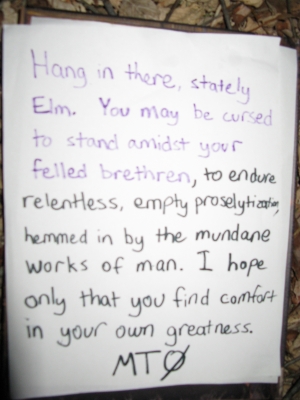 Hang in there, stately
Elm. You may be cursed
to stand amidst your
felled brethren, to endure
relentless, empty proselytization,
hemmed in by the mundane
works of man. I hope
only that you find comfort
in your own greatness.
MTØ